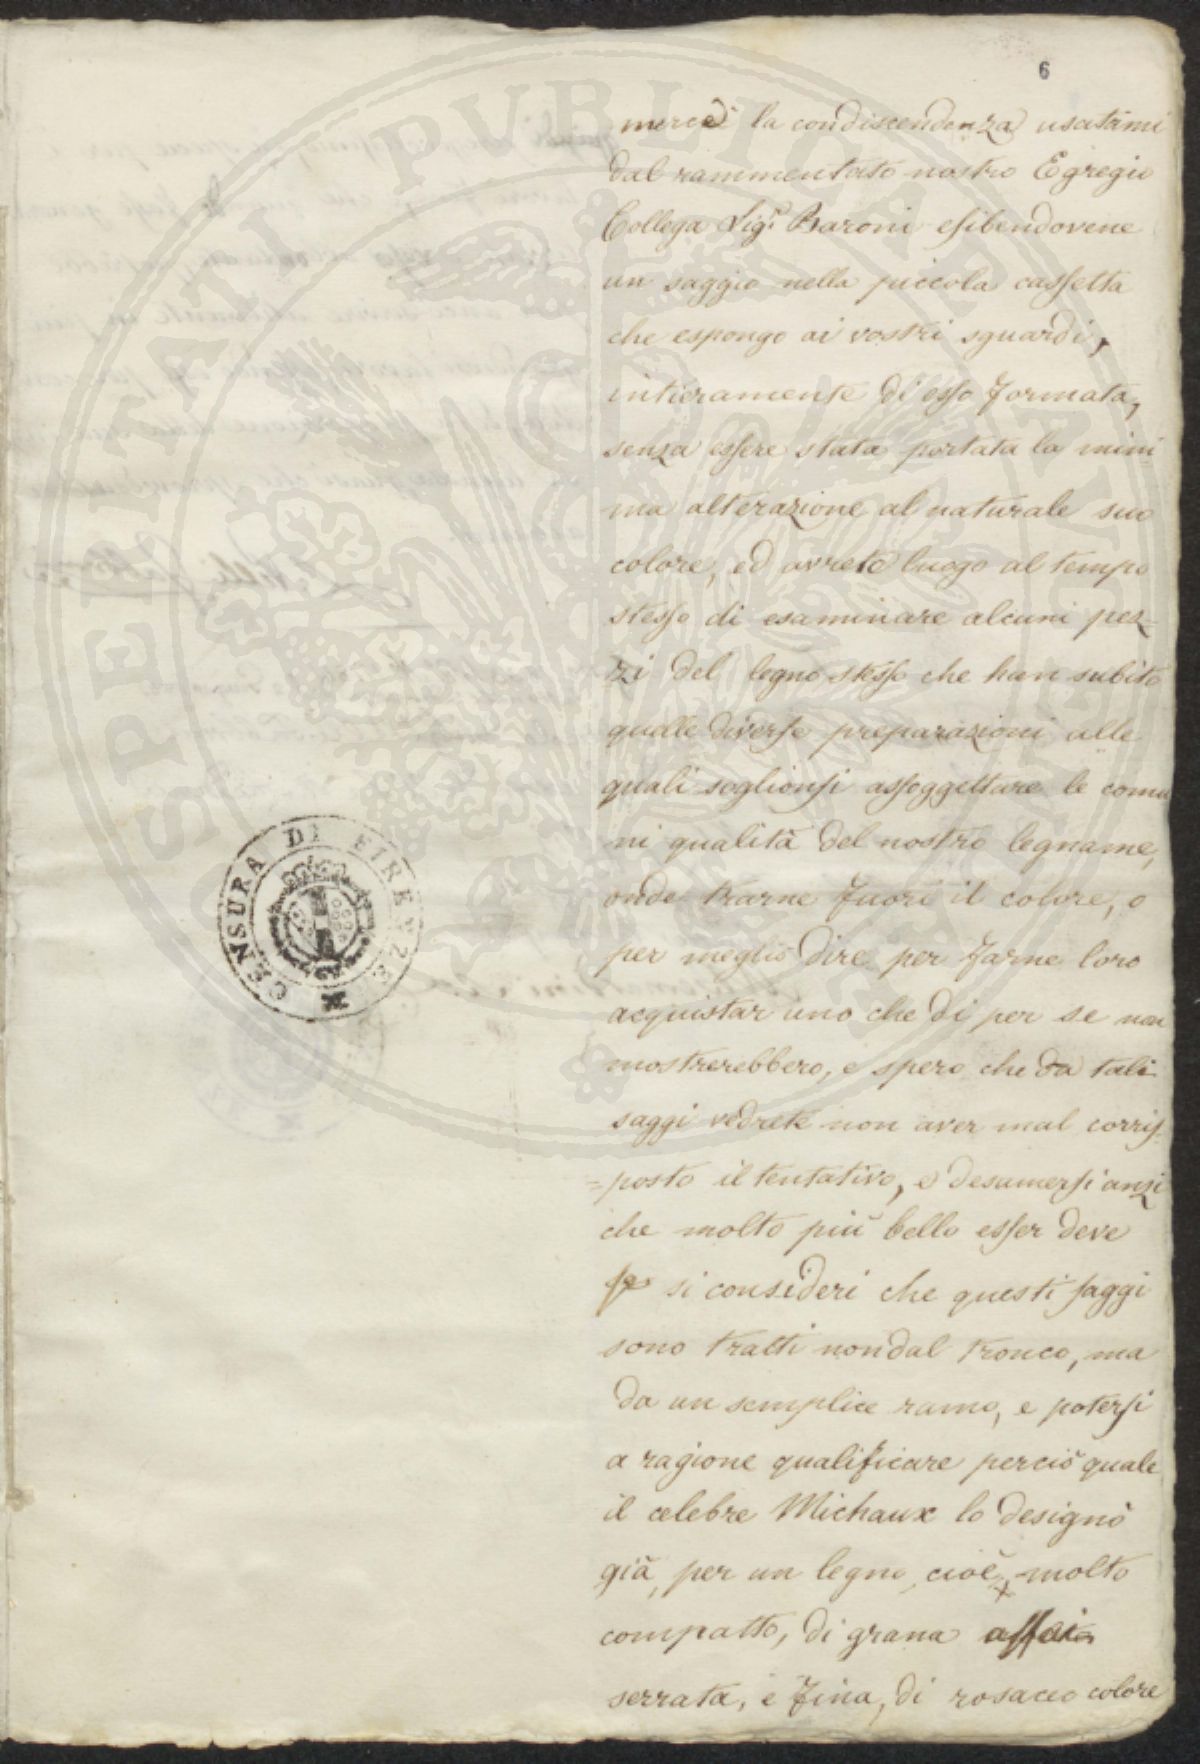 6
mercè la condiscendenza usatami
dal rammentato nostro Egregio
Collega Sig.r Baroni esibendovene
un saggio nella piccola cassetta
che espongo ai vostri sguardi,
intieramente di esso formata,
senza essere stata portata la mini
ma alterazione al naturale suo
colore, ed avrete luogo al tempo
stesso di esaminare alcuni pez-
zi del legno stesso che han subito
quelle diverse preparazioni alle
quali soglionsi assoggettare le comu
ni qualità del nostro legname,
onde trarne fuori il colore, o
per meglio dire per farne loro
acquistar uno che di per se non
mostrerebbero, e spero che da tali
saggi vedrete non aver mal corris-
=posto il tentativo, e desumersi anzi
che molto più bello esser deve
se si consideri che questi saggi
sono tratti non dal tronco, ma
da un semplice ramo, e potersi
a ragione qualificare perciò quale
il celebre Michaux lo designò
già, per un legno, cioè, molto
compatto, di grana assai
serrata, e fina, di rosaceo colore
CENSURA DI FIRENZE
SPERITATI PUBLICAE